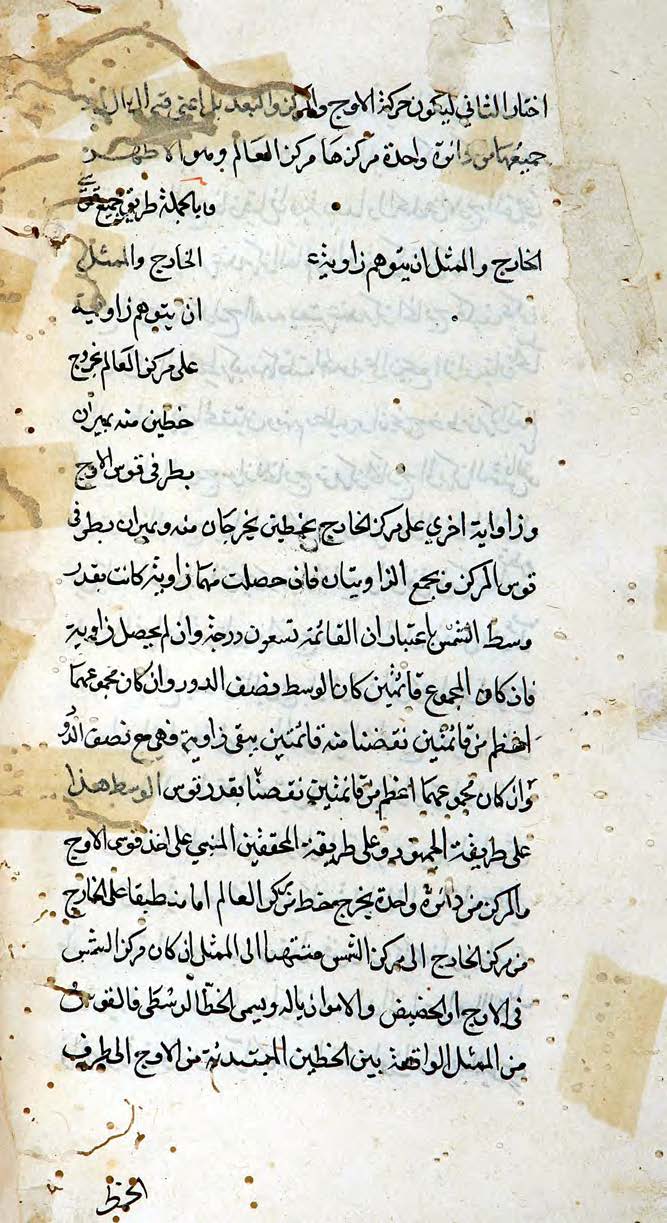 اختار الثاني ليكون حركة الاوج والمركز والبعد بل اعني
جميعها من دائرة واحدة مركزها مركز العالم وهو الاظهر
وبالجملة طريق جمع قوسي
الخارج والممثل ان يتوهم زاوية
الخارج والممثل
ان يتوهم زاوية
على مركز العالم بخروج
خطين منه يمران
بطرفي قوس الاوج
وزاواية اخري على مركز الخارج بخطين يخرجان منه ويمران بطرفي
قوس المركز ونجمع الزاويتان فان حصلت منهما زاوية كانت بقدر
وسط الشمس باعتبار ان القائمة تسعون درجة وان لم يحصل زاوية
فان كان المجموع قائمتين كان الوسط نصف الدور وان كان مجموعهما
اعظم من قائمتين نقصنا منه قائمتين يبقى زاوية فهي مع نصف الدور
وان كان مجموعهما اعظم من قائمتين نقصنا بقدر قوس الوسط هذا
على طريقة الجمهور وعلى طريقة المحققين المبني على اخذ قوسي الاوج
والمركز من دائرة واحدة يخرج خط من مركز العالم اما منطبقا على الخارج
من مركز الخارج الى مركز الشمس منتهيا الى الممثل ان كان مركز الشمس
في الاوج او الحضيض والا موازيا له ويسمى الخط الوسطي فالقوس
من الممثل الواقعة بين الخطين المبتدئة من الاوج الى طرف
الخط